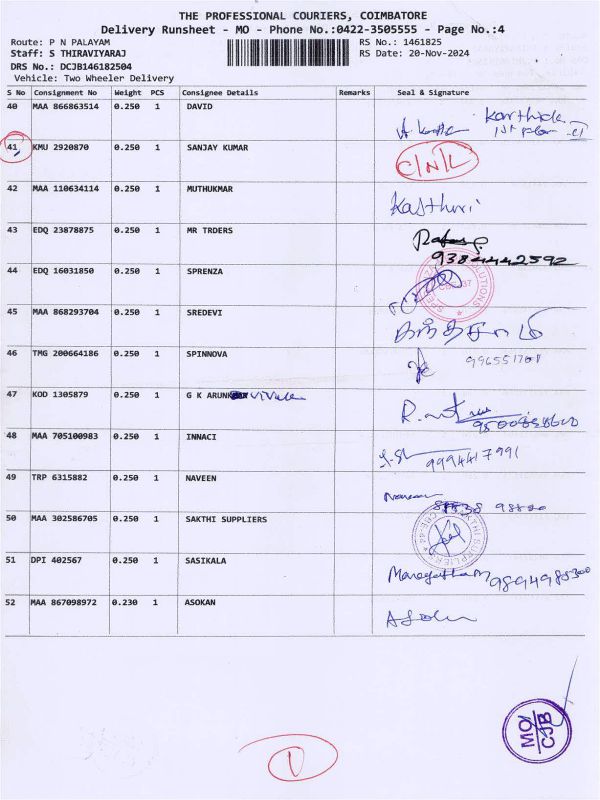 THE PROFESSIONAL COURIERS, COIMBATORE
Delivery Runsheet - MO - Phone No.:0422-3505555 - Page No.:4
Route: P N PALAYAM RS No.: 1461825
Staff: S THIRAVIYARAJ RS Date: 20-Nov-2024
DRS No.: DCJB146182504
Vehicle: Two Wheeler Delivery
S No Consignment No Weight PCS Consignee Details Remarks Seal & Signature
40 MAA 866863514 0.250 1 DAVID
41 KMU 2920870 0.250 1 SANJAY KUMAR C/N/L
42 MAA 110634114 0.250 1 MUTHUKMAR Kasthuri
43 EDQ 23878875 0.250 1 MR TRDERS
9384442592
44 EDQ 16031850 0.250 1 SPRENZA
45 MAA 868293704 0.250 1 SREDEVI
46 TMG 200664186 0.250 1 SPINNOVA
47 KOD 1305879 0.250 1 G K
48 MAA 705100983 0.250 1 INNACI 9994417991
49 TRP 6315882 0.250 1 NAVEEN Naveen
50 MAA 302586705 0.250 1 SAKTHI SUPPLIERS
51 DPI 402567 0.250 1 SASIKALA
52 MAA 867098972 0.230 1 ASOKAN Asokan
MO/
CJB
1